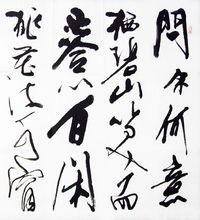 問余何意
栖碧山笑而
不答心自閑
桃花流水窅